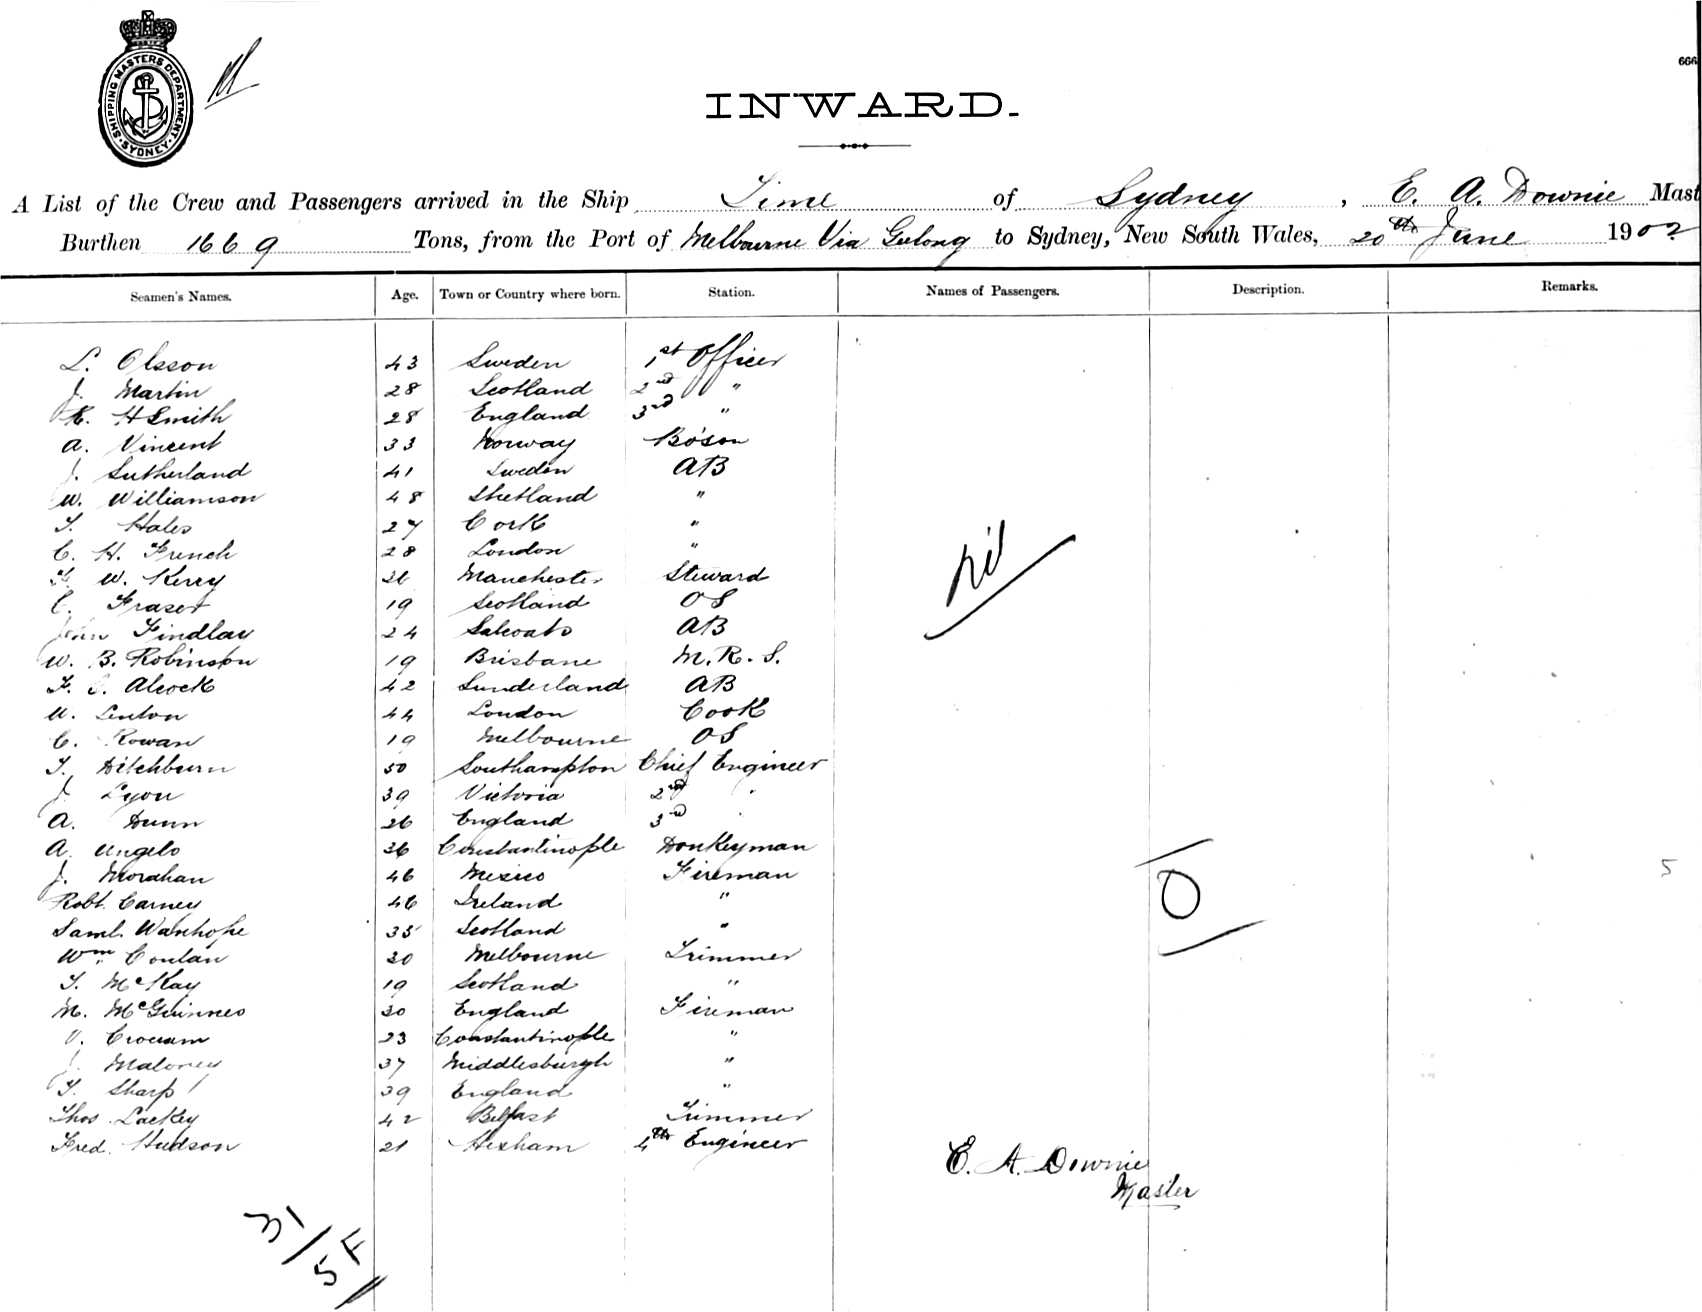 SHIPPING MASTERS DEPARTMENT
SYDNEY
666
INWARD.
A List of the Crew and Passengers arrived in the Ship Time of Sydney, E. A. Downie Mast
Burthen 1669 Tons, from the Port of Melbourne Via Geelong to Sydney, New South Wales, 20th June 1902
Seamen's Names. Age. Town or Country where born. Station. Names of Passengers. Description. Remarks.
L. Olsson 43 Sweden 1st Officer
J. Martin 28 Scotland 2nd "
H Smith 28 England 3rd "
A. Vincent 33 Norway Bo'son
J. Sutherland 41 Sweden AB
W. Williamson 48 Shetland "
T. Hales 27 Cork "
C. H. French 28 London "
W. Kerry Manchester Steward
C. Fraser 19 Scotland OS
John Findlay 24 Salcoats AB
W. B. Robinson 19 Brisbane M.R.S.
F. Alcock 42 Sunderland AB
Lenton 44 London Cook
C. Rowan 19 Melbourne OS
T. Ditchburn 50 Southampton Chief Engineer
J. Lyon 39 Victoria 2nd "
A. Dunn 26 England 3rd "
A. Angelo 36 Constantinople Donkeyman
J. Morahan 46 Mexico Fireman
Robt. Carney 46 Ireland "
Saml. Wanhope 35 Scotland "
Wm. Conlan 30 Melbourne Trimmer
T. McKay 19 Scotland "
M. McGuinnes 30 England Fireman
V. 23 Constantinople "
J. Maloney 37 Middlesburgh "
T. Sharp 39 England "
Thos. Lackey 42 Belfast Trimmer
Fred. Hudson 21 Hexham 4th Engineer
nil
0
5
E. A. Downie
Master
31/5F